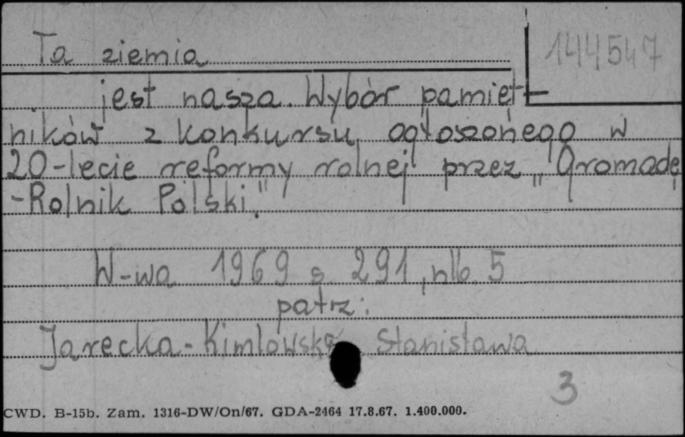 Ta ziemia
144547
jest nasza. Wybór pamięt-
ników z konkursu ogłoszonego w
20-lecie reformy rolnej przez „Gromadę
-Rolnik Polski."
W-wa 1969 s. 291, nlb. 5
patrz:
Jarecka-Kimlowska Stanisława
3
CWD. B-15b. Zam. 1316-DW/On/67. GDA-2464 17.8.67. 1.400.000.